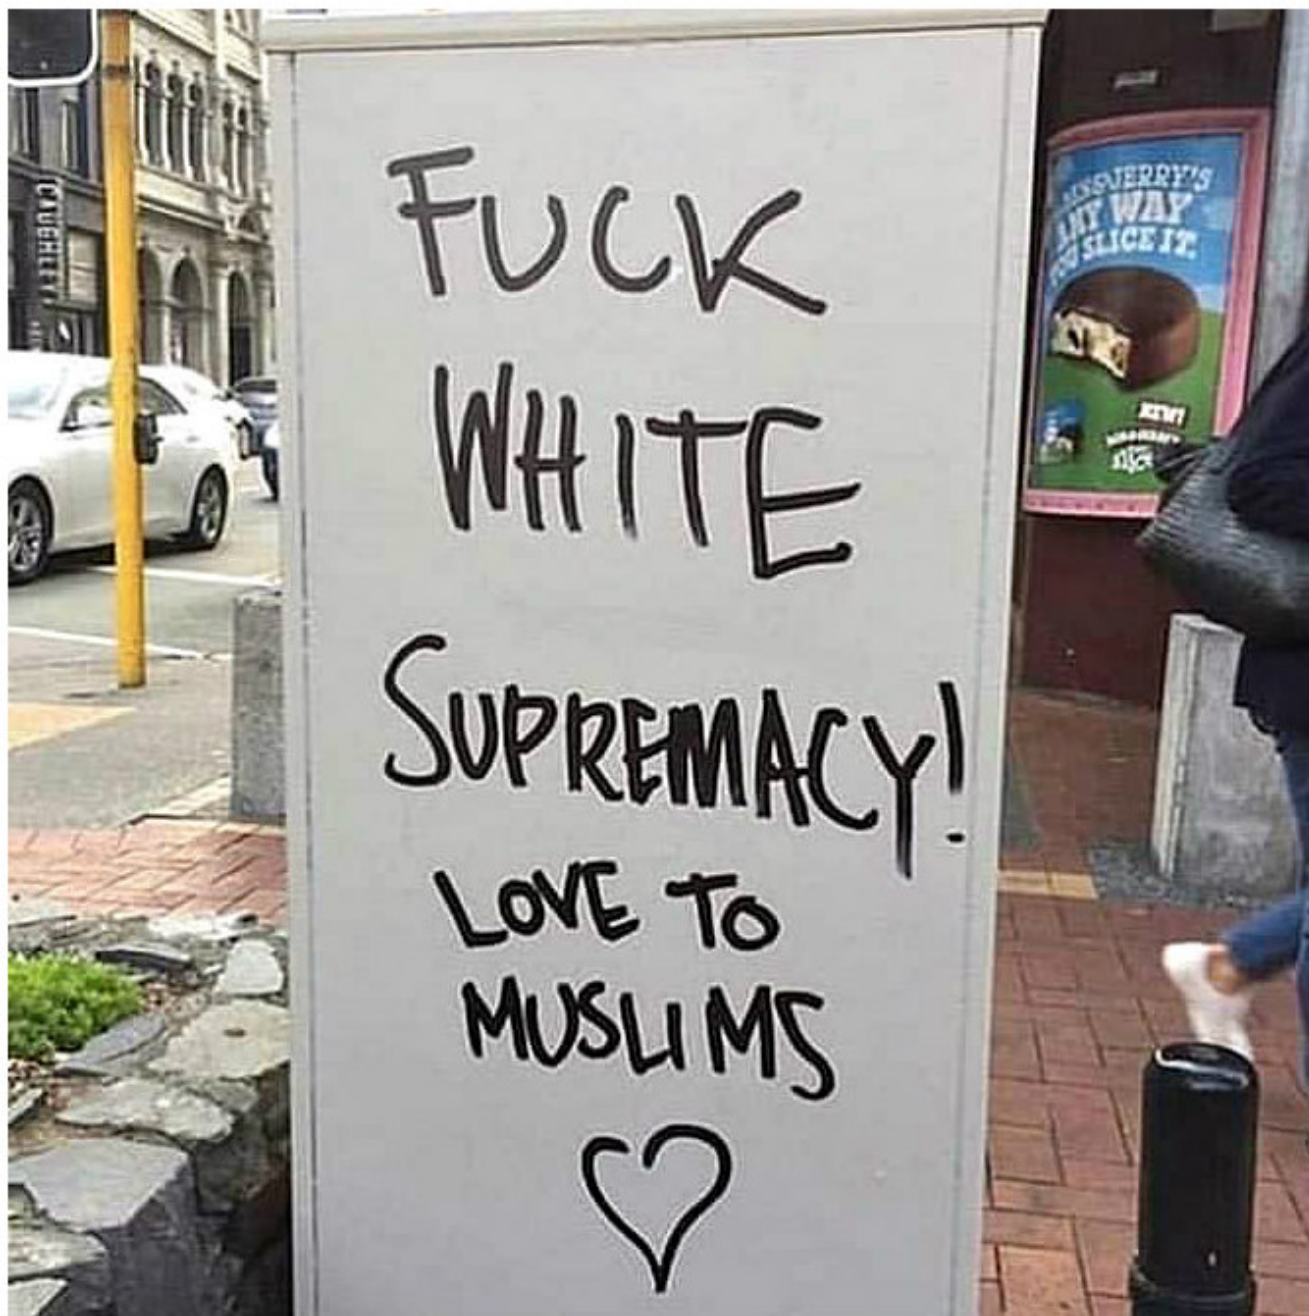 FUCK
WHITE
SUPREMACY!
LOVE TO
MUSLIMS
BEN & JERRY'S
ANY WAY
YOU SLICE IT.
NEW!